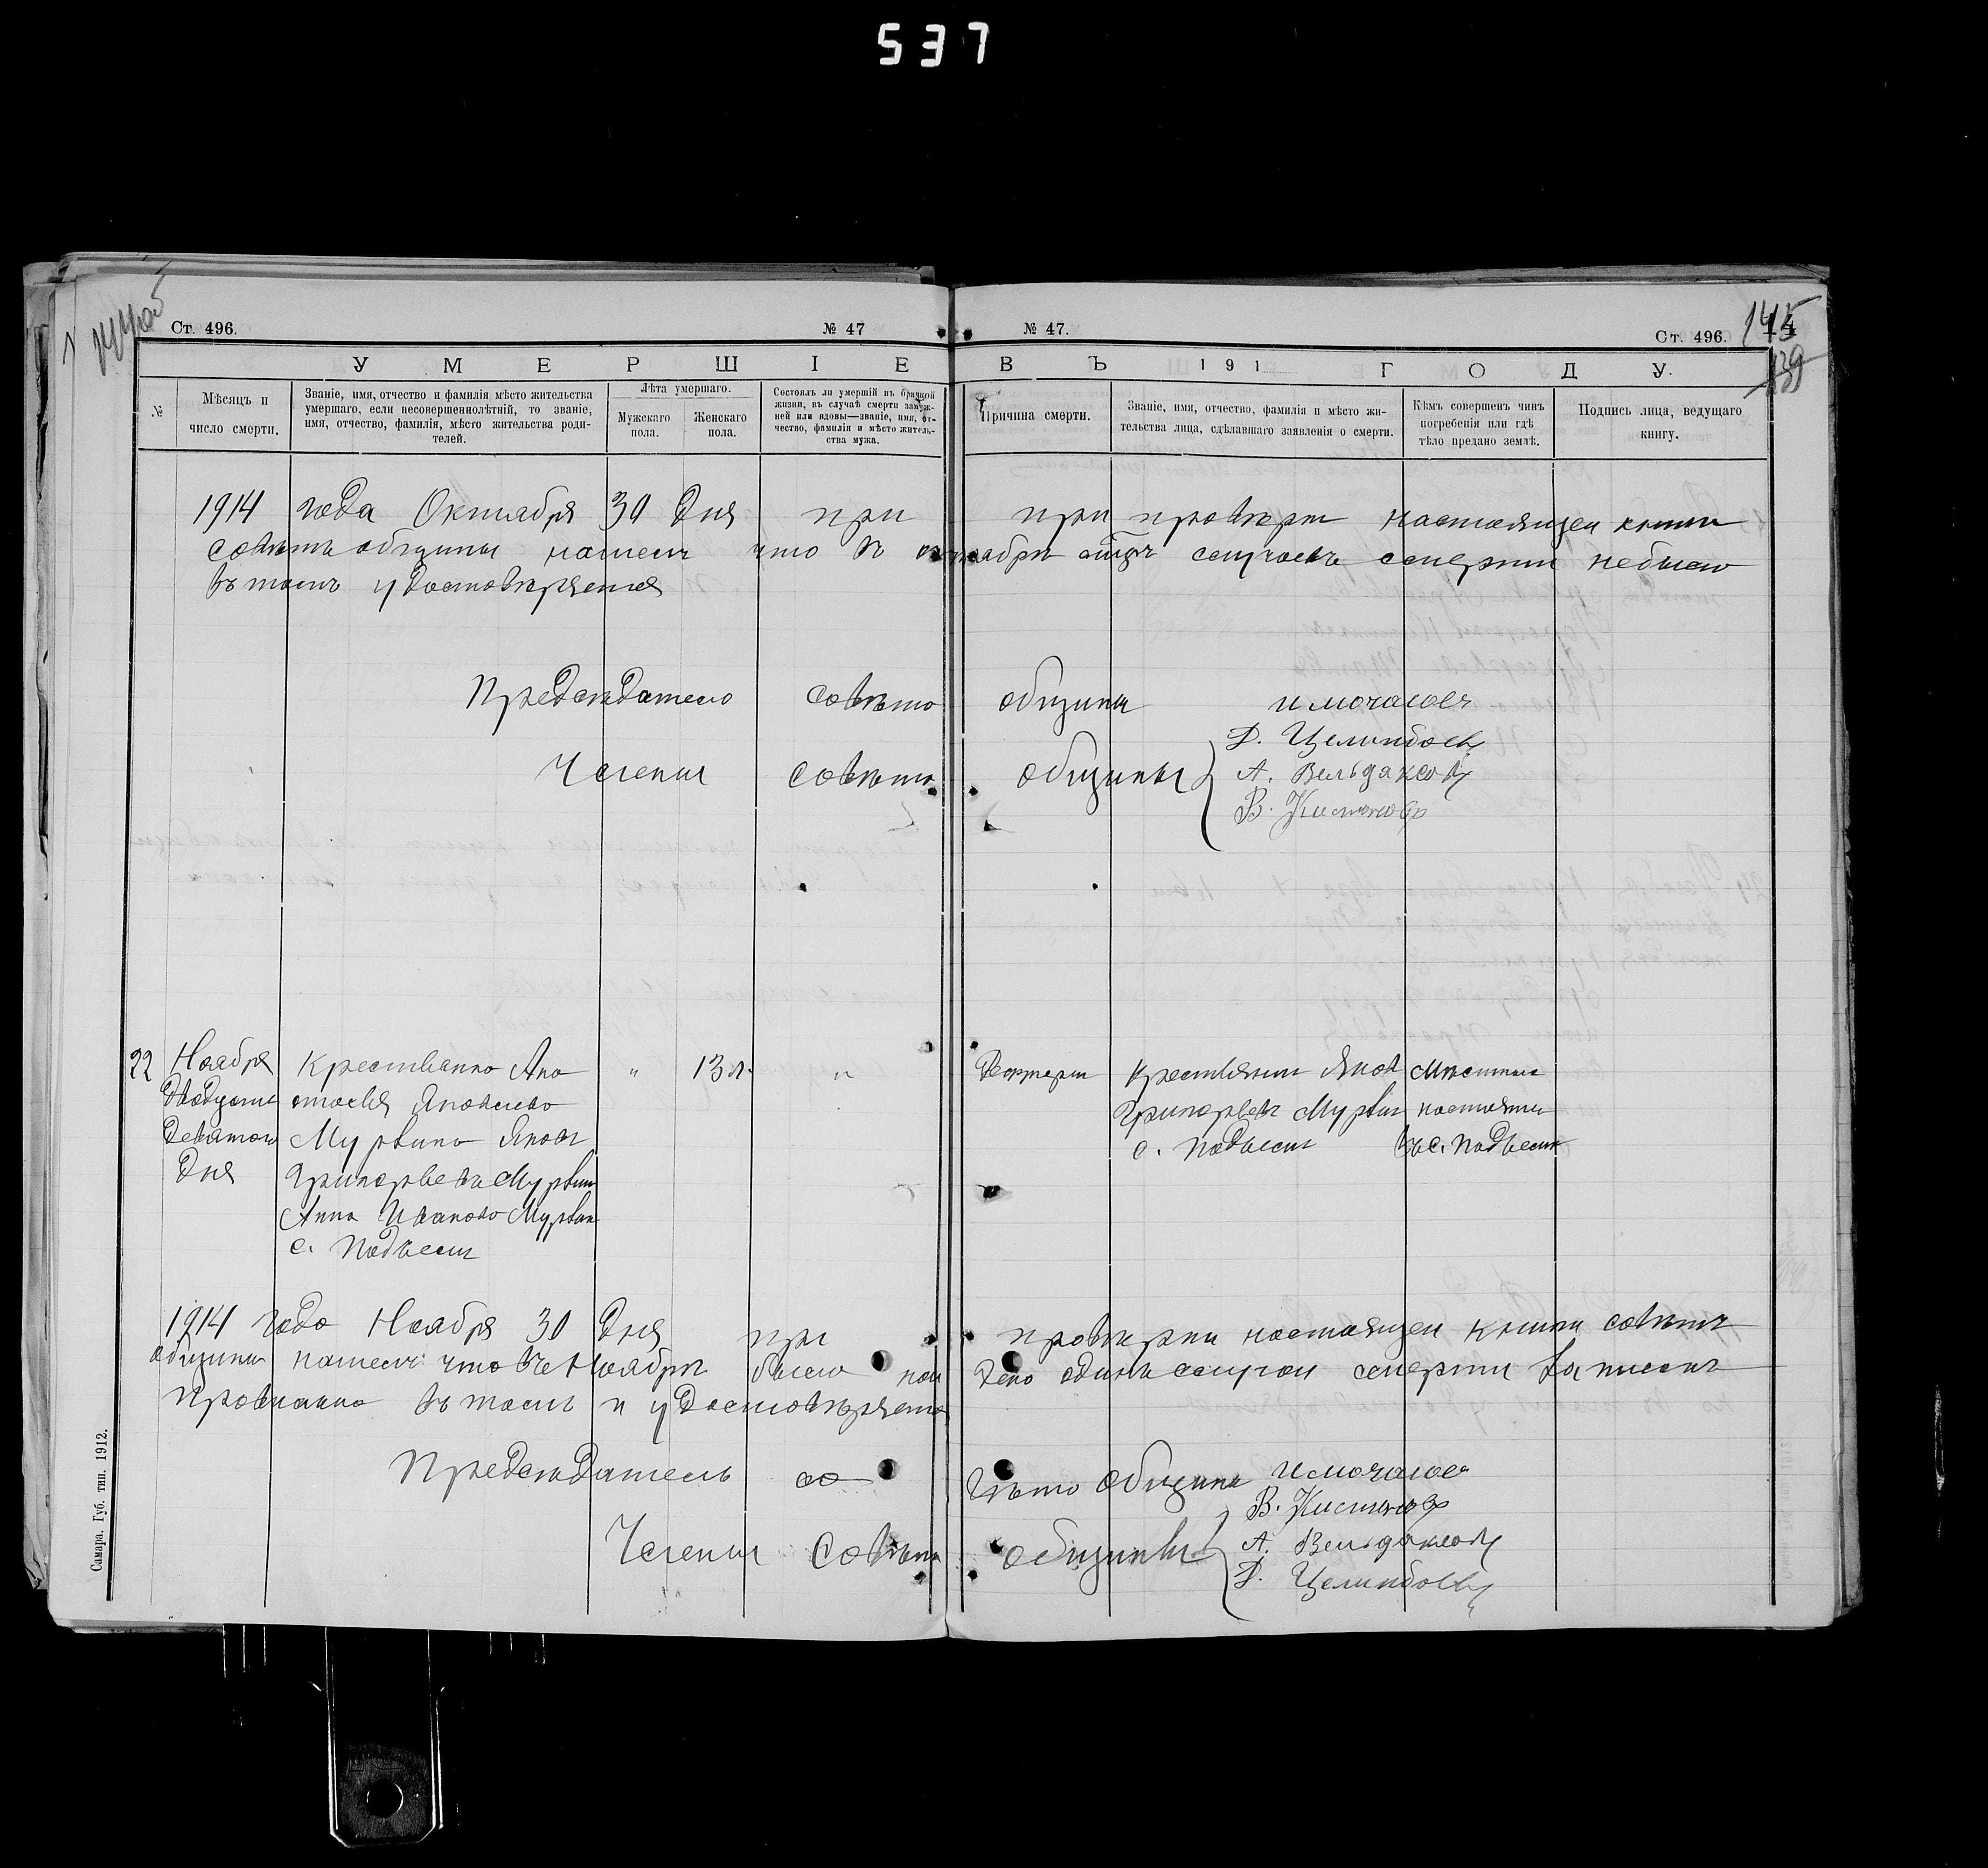 537
Ст. 496.
№ 47
№ 47.
Ст. 496.
145
139
УМЕРШІЕ
ВЪ 191 ГОДУ.
№
Мѣсяцъ и
число смерти.
Званіе, имя, отчество и фамилія мѣсто жительства
умершаго, если несовершеннолѣтній, то званіе,
имя, отчество, фамилія, мѣсто жительства роди-
телей.
Лѣта умершаго.
Мужскаго
пола.
Женскаго
пола.
Состоялъ ли умершій въ брачной
жизни, въ случаѣ смерти замуж-
ней или вдовы—званіе, имя, от-
чество, фамилія и мѣсто житель-
ства мужа.
Причина смерти.
Званіе, имя, отчество, фамилія и мѣсто жи-
тельства лица, сдѣлавшаго заявленія о смерти.
Кѣмъ совершенъ чинъ
погребенія или гдѣ
тѣло предано землѣ.
Подпись лица, ведущаго
книгу.
1914 года Октября 30 Дня при при проверки настоящеи книги
советъ общины нашелъ что въ октябри случаевъ смерти небыло
въ томъ удостоверяется
Председатель совѣта общины И Мочалов
Д. Целинбоевъ
Члены совѣта общины А. Вельдяксовъ
В. Кистановъ
22
Ноября
Двадцать
Девятого
Дня
Крестьянка Ана
стасья Яковлево
Мурвина Яковъ
Григорьевъ Мурвин
Анна Иваново Мурвин
с. Подвесн
"
13 л.
"
Крестьянин Яков
Григорьевъ Мурвин
с. Подвесн
Местным
настояти
въ с. Подвесн
1914 года Ноября 30 Дня при проверки настоящеи книги советъ
общины нашелъ что въ Ноябри было най дено одинъ случаи смерти записан
провилно въ томъ и удостоверяетъ
Председатель со вѣта общины И Мочалов
В. Кистановъ
Члены Совѣта общины А. Вельдяксовъ
Д. Целинбоевъ
Самара. Губ. тип. 1912.